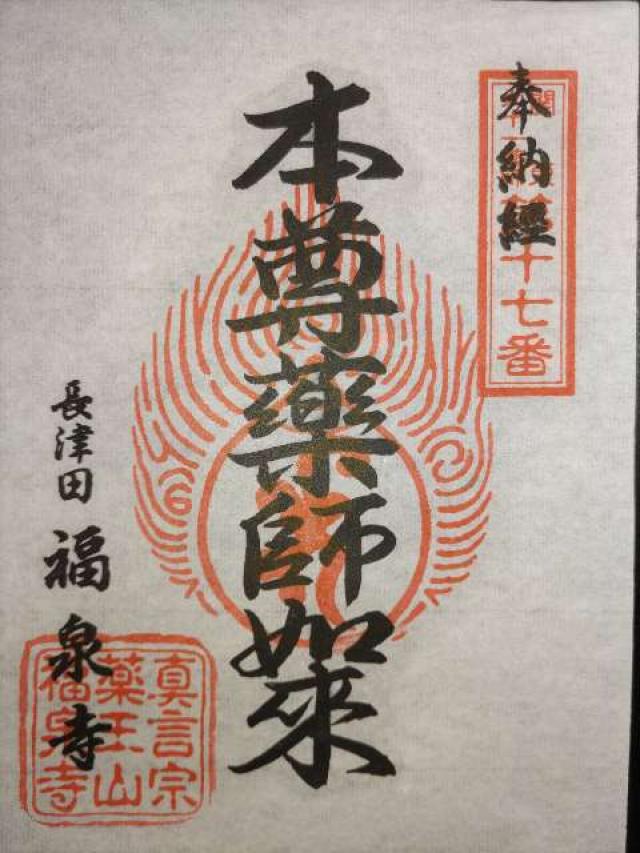 奉納經
十七番
本尊藥師如來
長津田 福泉寺
真言宗
薬王山
福泉寺